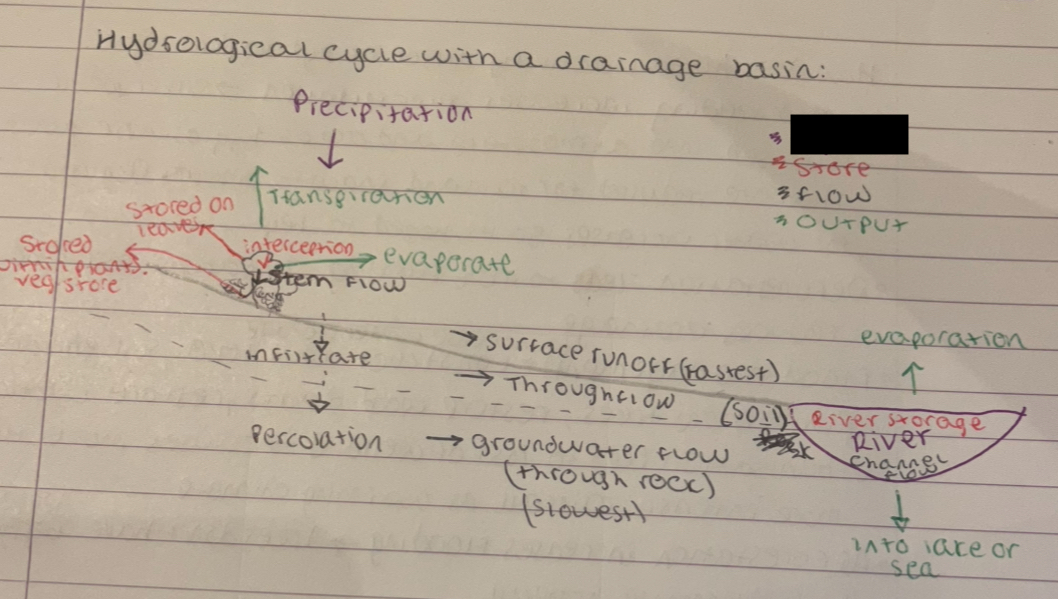 Hydrological cycle with a drainage basin:
Precipitation
* Store
* flow
* OUTPUT
Transpiration
Stored on
leaves
interception
Stored
plants.
veg store
evaporate
Stem flow
infiltrate
surface runoff (fastest)
Throughflow
(soil)
evaporation
River storage
River
channel
flow
Percolation
groundwater flow
(through rock)
(slowest)
into lake or
sea